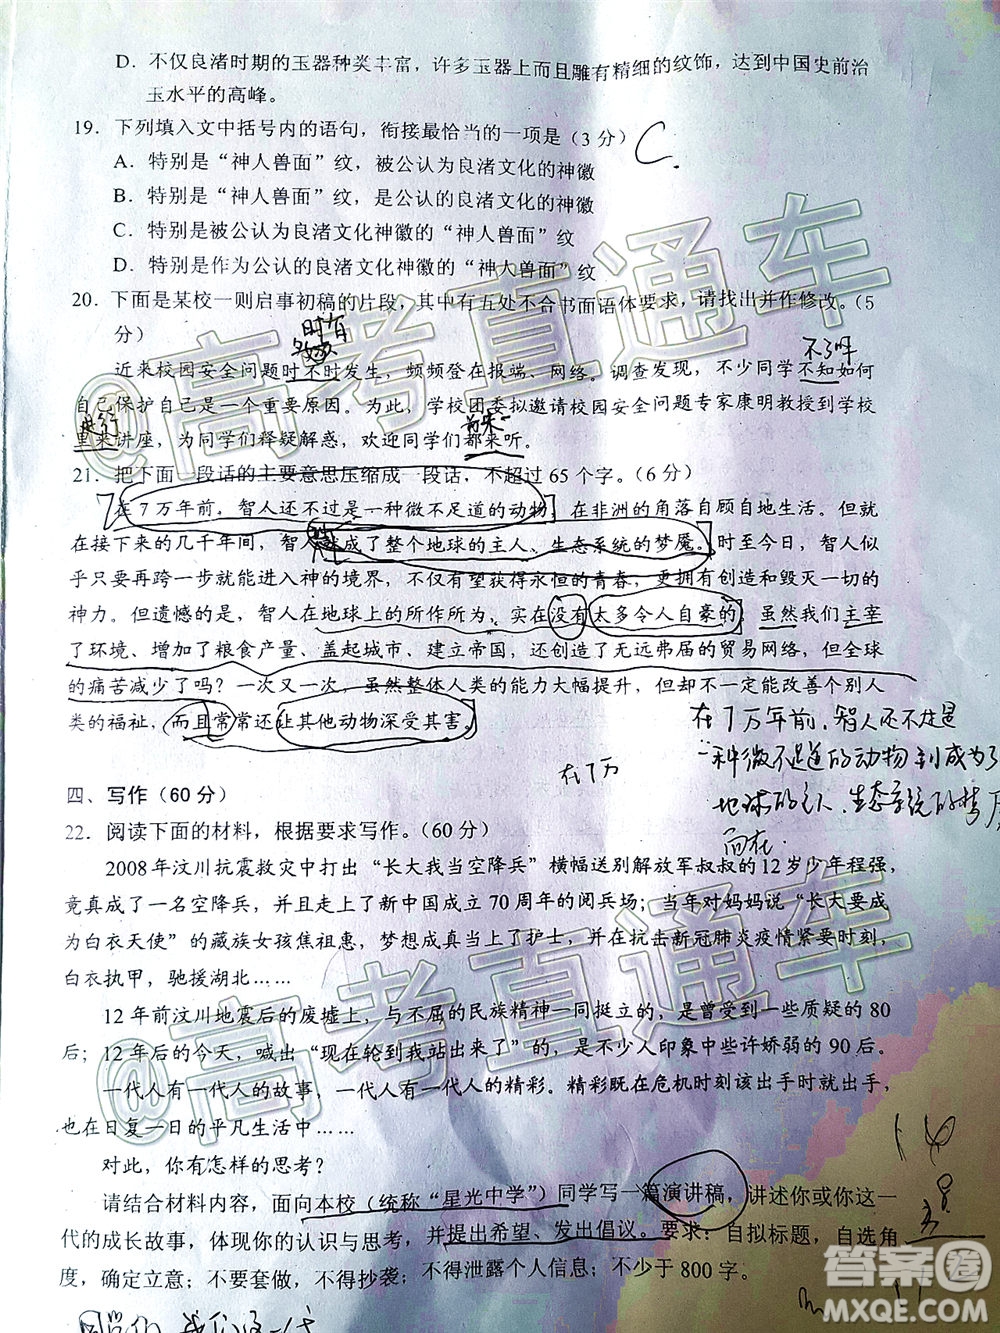 D. 不仅良渚时期的玉器种类丰富，许多玉器上而且雕有精细的纹饰，达到中国史前治
玉水平的高峰。
19. 下列填入文中括号内的语句，衔接最恰当的一项是（3 分）
C.
A. 特别是“神人兽面”纹，被公认为良渚文化的神徽
B. 特别是“神人兽面”纹，是公认的良渚文化的神徽
C. 特别是被公认为良渚文化神徽的“神人兽面”纹
D. 特别是作为公认的良渚文化神徽的“神人兽面”纹
20. 下面是某校一则启事初稿的片段，其中有五处不合书面语体要求，请找出并作修改。（5
分）
时有
近来校园安全问题时不时发生，频频登在报端、网络。调查发现，不少同学不知如何
自己保护自己是一个重要原因。为此，学校团委拟邀请校园安全问题专家康明教授到学校
里来讲座，为同学们释疑解惑，欢迎同学们都来听。
21. 把下面一段话的主要意思压缩成一段话，不超过 65 个字。（6 分）
在 7 万年前，智人还不过是一种微不足道的动物，在非洲的角落自顾自地生活。但就
在接下来的几千年间，智人就成了整个地球的主人、生态系统的梦魇。时至今日，智人似
乎只要再跨一步就能进入神的境界，不仅有望获得永恒的青春，更拥有创造和毁灭一切的
神力。但遗憾的是，智人在地球上的所作所为，实在没有太多令人自豪的。虽然我们主宰
了环境、增加了粮食产量、盖起城市、建立帝国，还创造了无远弗届的贸易网络，但全球
的痛苦减少了吗？一次又一次，虽然整体人类的能力大幅提升，但却不一定能改善个别人
类的福祉，而且常常还让其他动物深受其害。
在7万年前，智人还不过是
一种微不足道的动物到成为了
在7万
地球的主人、生态系统的梦
四、写作（60 分）
22. 阅读下面的材料，根据要求写作。（60 分）
2008 年汶川抗震救灾中打出“长大我当空降兵”横幅送别解放军叔叔的 12 岁少年程强，
竟真成了一名空降兵，并且走到了新中国成立 70 周年的阅兵场；当年对妈妈说“长大要成
为白衣天使”的藏族女孩焦祖惠，梦想成真当上了护士，并在抗击新冠肺炎疫情紧要时刻，
白衣执甲，驰援湖北……
12 年前汶川地震后的废墟上，与不屈的民族精神一同挺立的，是曾受到一些质疑的 80
后；12 年后的今天，喊出“现在轮到我站出来了”的，是不少人印象中些许娇弱的 90 后。
一代人有一代人的故事，一代人有一代人的精彩。精彩既在危机时刻该出手时就出手，
也在日复一日的平凡生活中……
对此，你有怎样的思考？
请结合材料内容，面向本校（统称“星光中学”）同学写一篇演讲稿，讲述你或你这一
代的成长故事，体现你的认识与思考，并提出希望、发出倡议。要求：自拟标题，自选角
度，确定立意；不要套做，不得抄袭；不得泄露个人信息；不少于 800 字。
同学们 我们这一代
@高考直通车
@高考直通车
答案圈
MXQE.COM